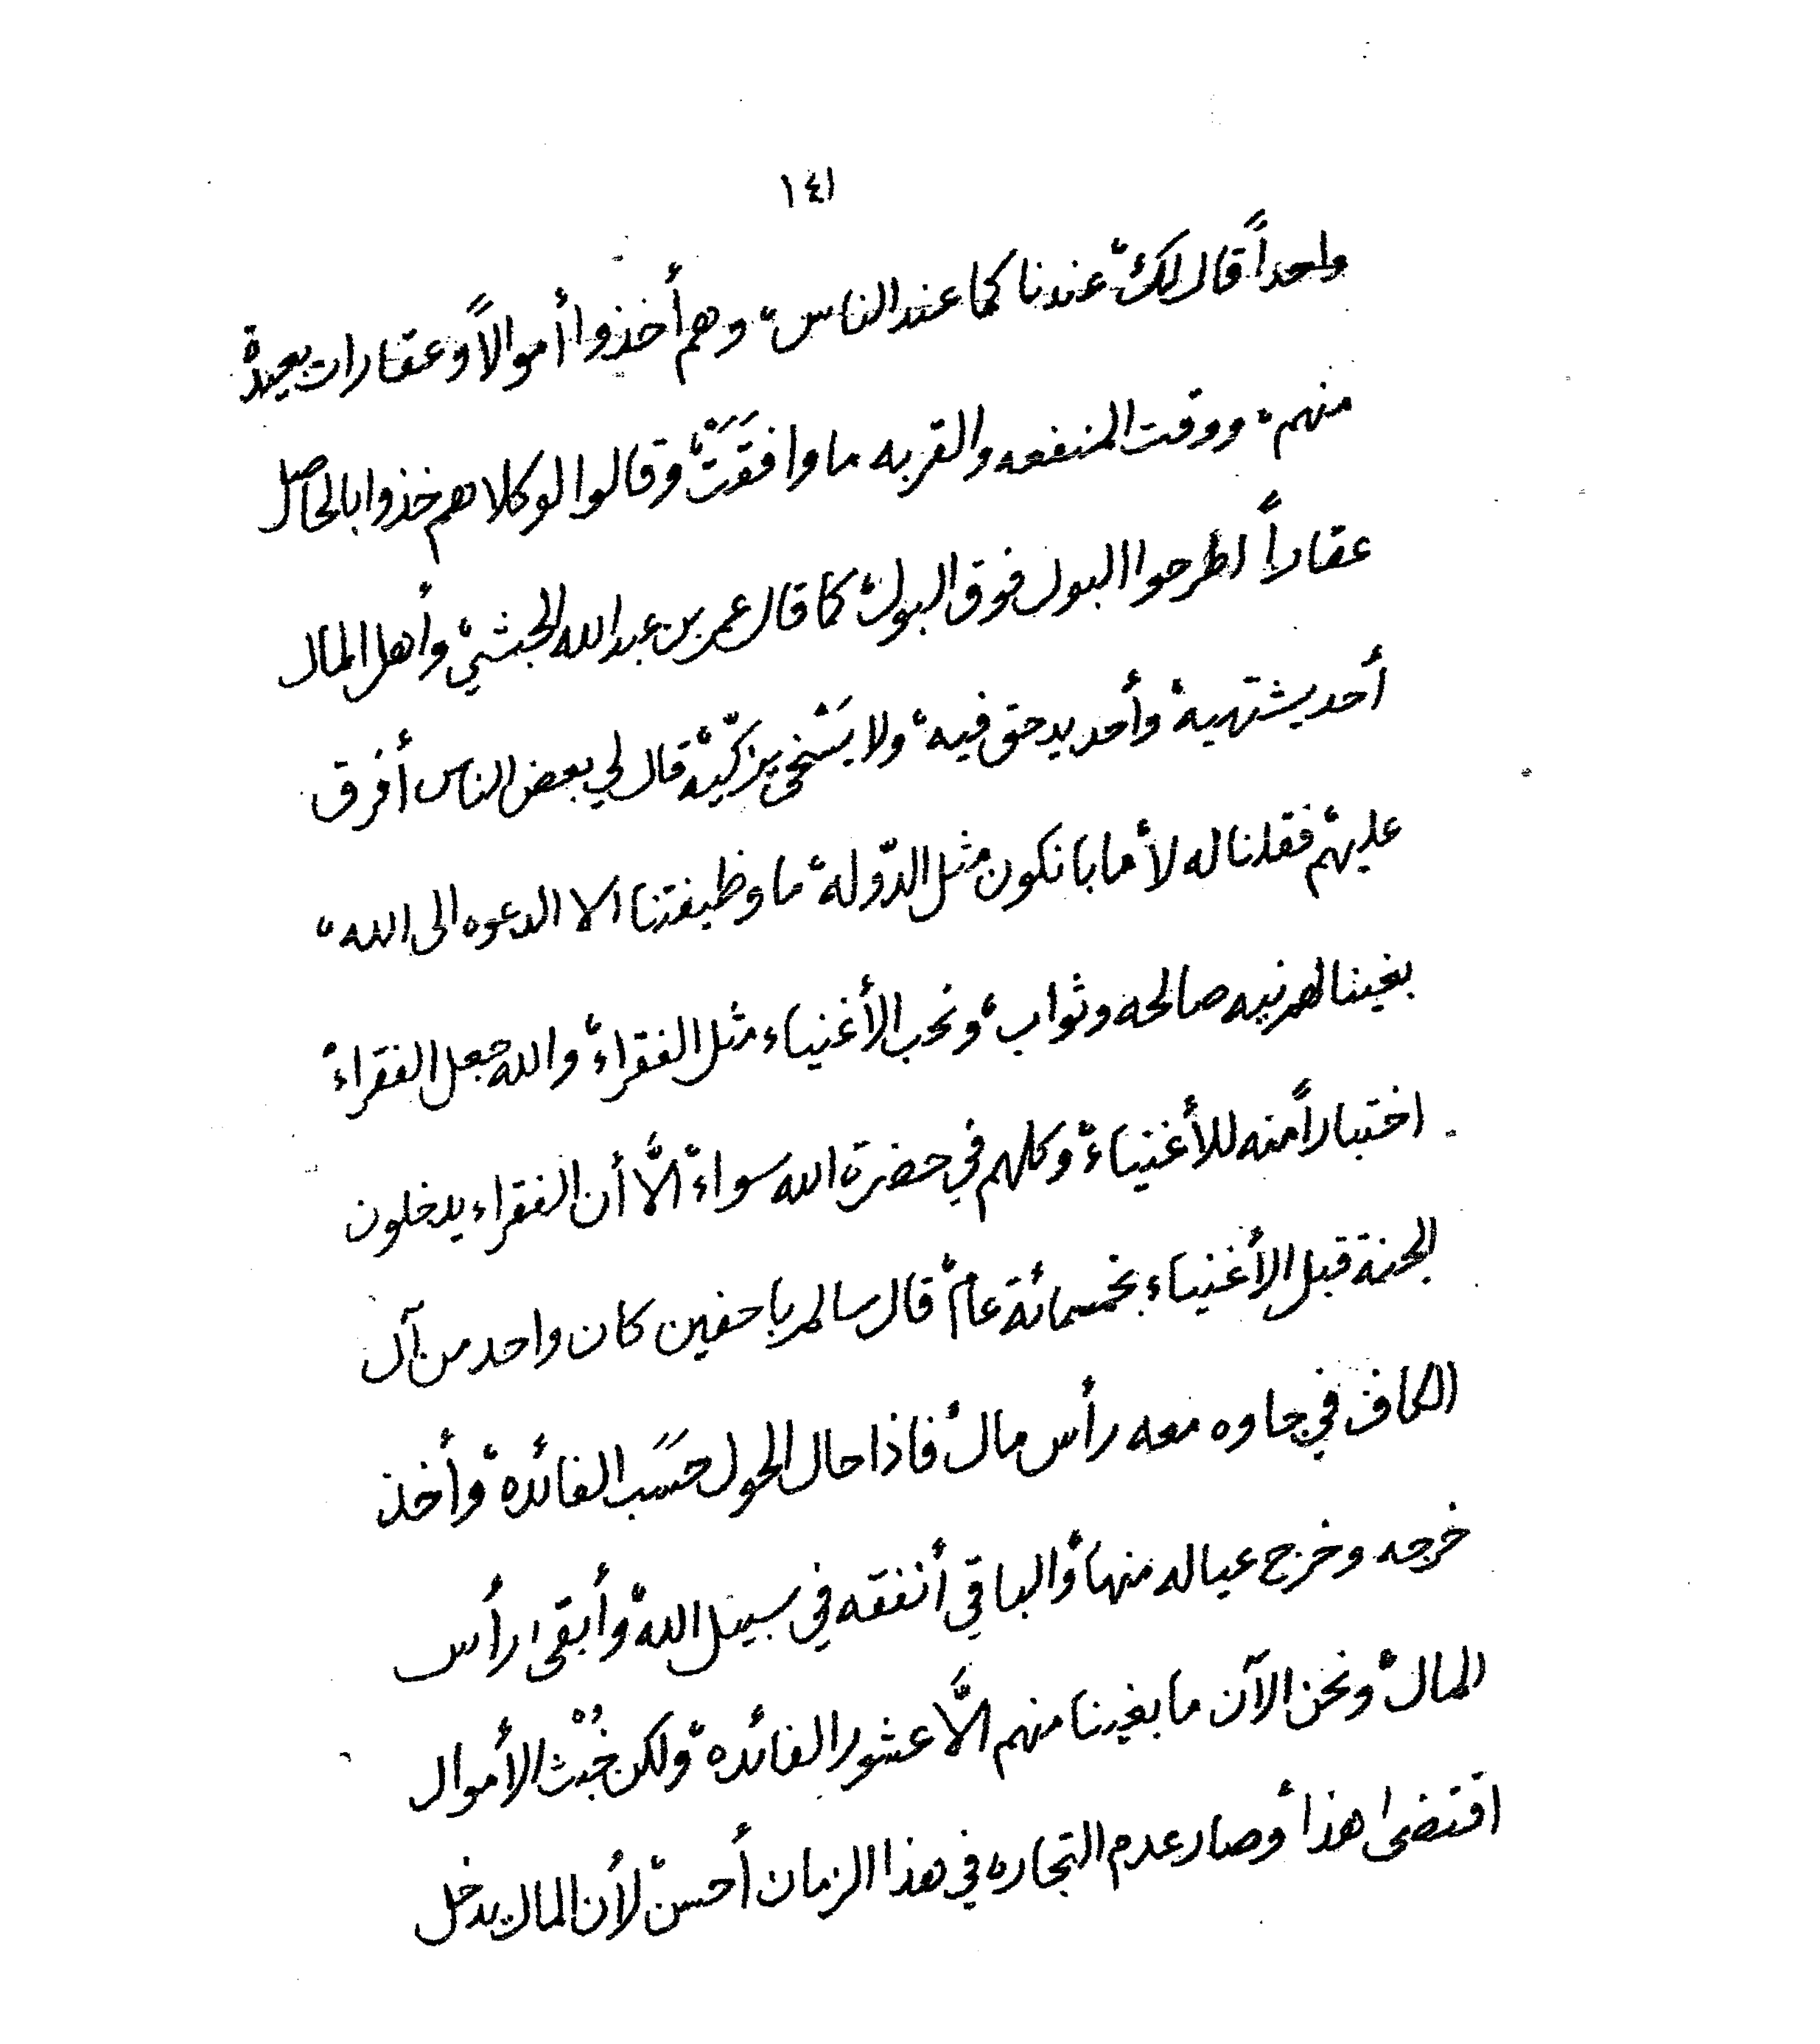 ١٤١
واحداً قال لك، عندنا كما عند الناس، وهم أخذوا أموالاً وعقارات بعيدة
منهم، ووقت المنفعه والقربه ما وافَقَتْ، وقالوا لوكلاهم خذوا بالحاصل
عقاراً اطرحوا البول فوق البول، كما قال عمر بن عبدالله الحبشي، وأهل المال
أحد يشتهيه، وأحد يدحق فيه، ولا يَسْخى يزكّيه، قال لي بعض الناس أفرق
عليهم، فقلنا له لا، ما با نكون مثل الدّوله، ما وظيفتنا الا الدعوه الى الله،
بغينا لهم نيه صالحه وثواب، ونحب الأغنياء مثل الفقراء، والله جعل الفقراء،
اختباراً منه للأغنياء، وكلهم في حضرة الله سواء، الَّا أن الفقراء يدخلون
الجنة قبل الأغنياء بخمسمائة عام، قال سالم باحفين كان واحد من آل
الكاف في جاوه معه رأس مال، فاذا حال الحول حسَب الفائده، وأخذ
خرجه وخرج عياله منها، والباقي أنفقه في سبيل الله، وأبقى رأس
المال، ونحن الآن ما بغينا منهم الَّا عشور الفائده، ولكن خُبْث الأموال
اقتضى هذا، وصار عدم التجاره في هذا الزمان أحسن، لأن المال يدخل